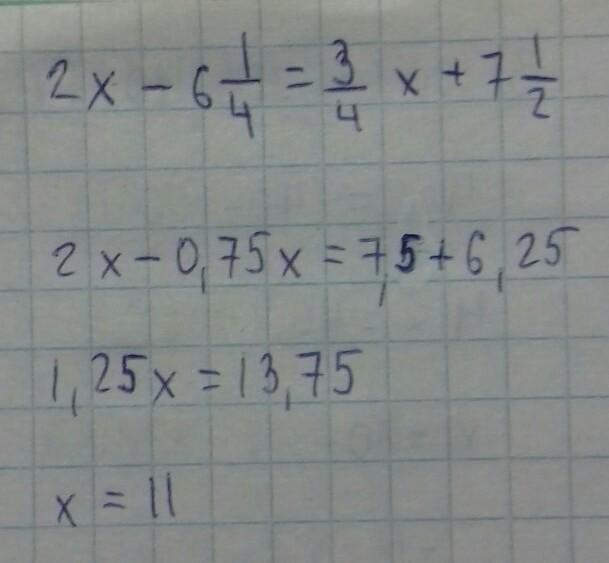 2x - 6 1/4 = 3/4 x + 7 1/2
2x - 0,75x = 7,5 + 6,25
1,25x = 13,75
x = 11